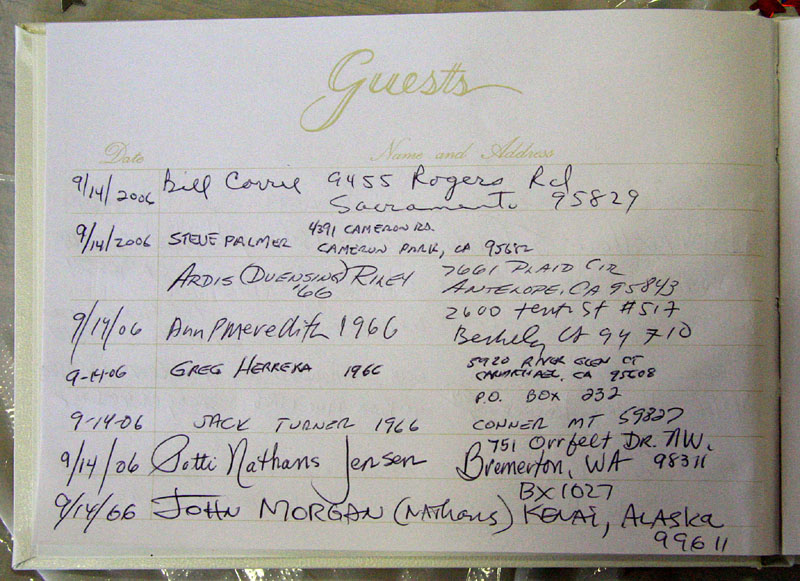 Guests
Date Name and Address
9/14/2006 Bill Corrie 9455 Rogers Rd
Sacramento 95829
9/14/2006 STEVE PALMER 4391 CAMERON RD.
CAMERON PARK, CA 95682
ARDIS (DUENSING) RILEY 7661 PLAID CIR
'66 ANTELOPE, CA 95843
9/14/06 Ann P Meredith 1966 2600 Tenth St #517
Berkely CA 94710
9-14-06 GREG HERRERA 1966 5920 RIVER GLEN CT
CARMICHAEL, CA 95608
P.O. BOX 232
9-14-06 JACK TURNER 1966 CONNER MT 59827
751 Orrfelt Dr. NW.
9/14/06 Patti Nathans Jensen Bremerton, WA 98311
BX 1027
9/14/66 JOHN MORGAN (NATHANS) KENAI, ALASKA
99611